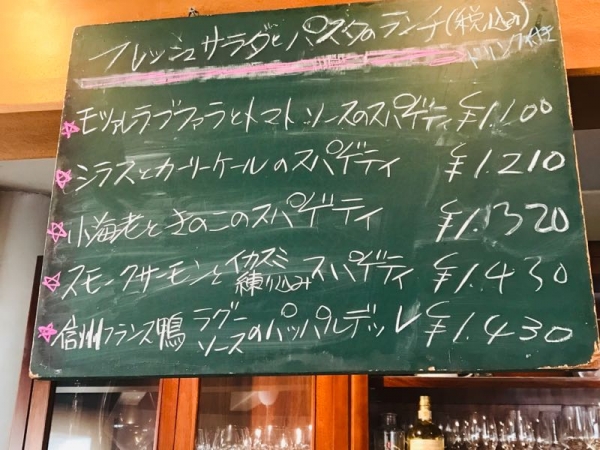 フレッシュサラダとパスタのランチ(税込み)
ドリンク付き
モッツァレラブファラとトマトソースのスパゲティ ¥1.100
シラスとカーリーケールのスパゲティ ¥1.210
小海老ときのこのスパゲティ ¥1.320
スモークサーモンとイカスミ練り込みスパゲティ ¥1.430
信州フランス鴨ラグーソースのパッパルデッレ ¥1.430